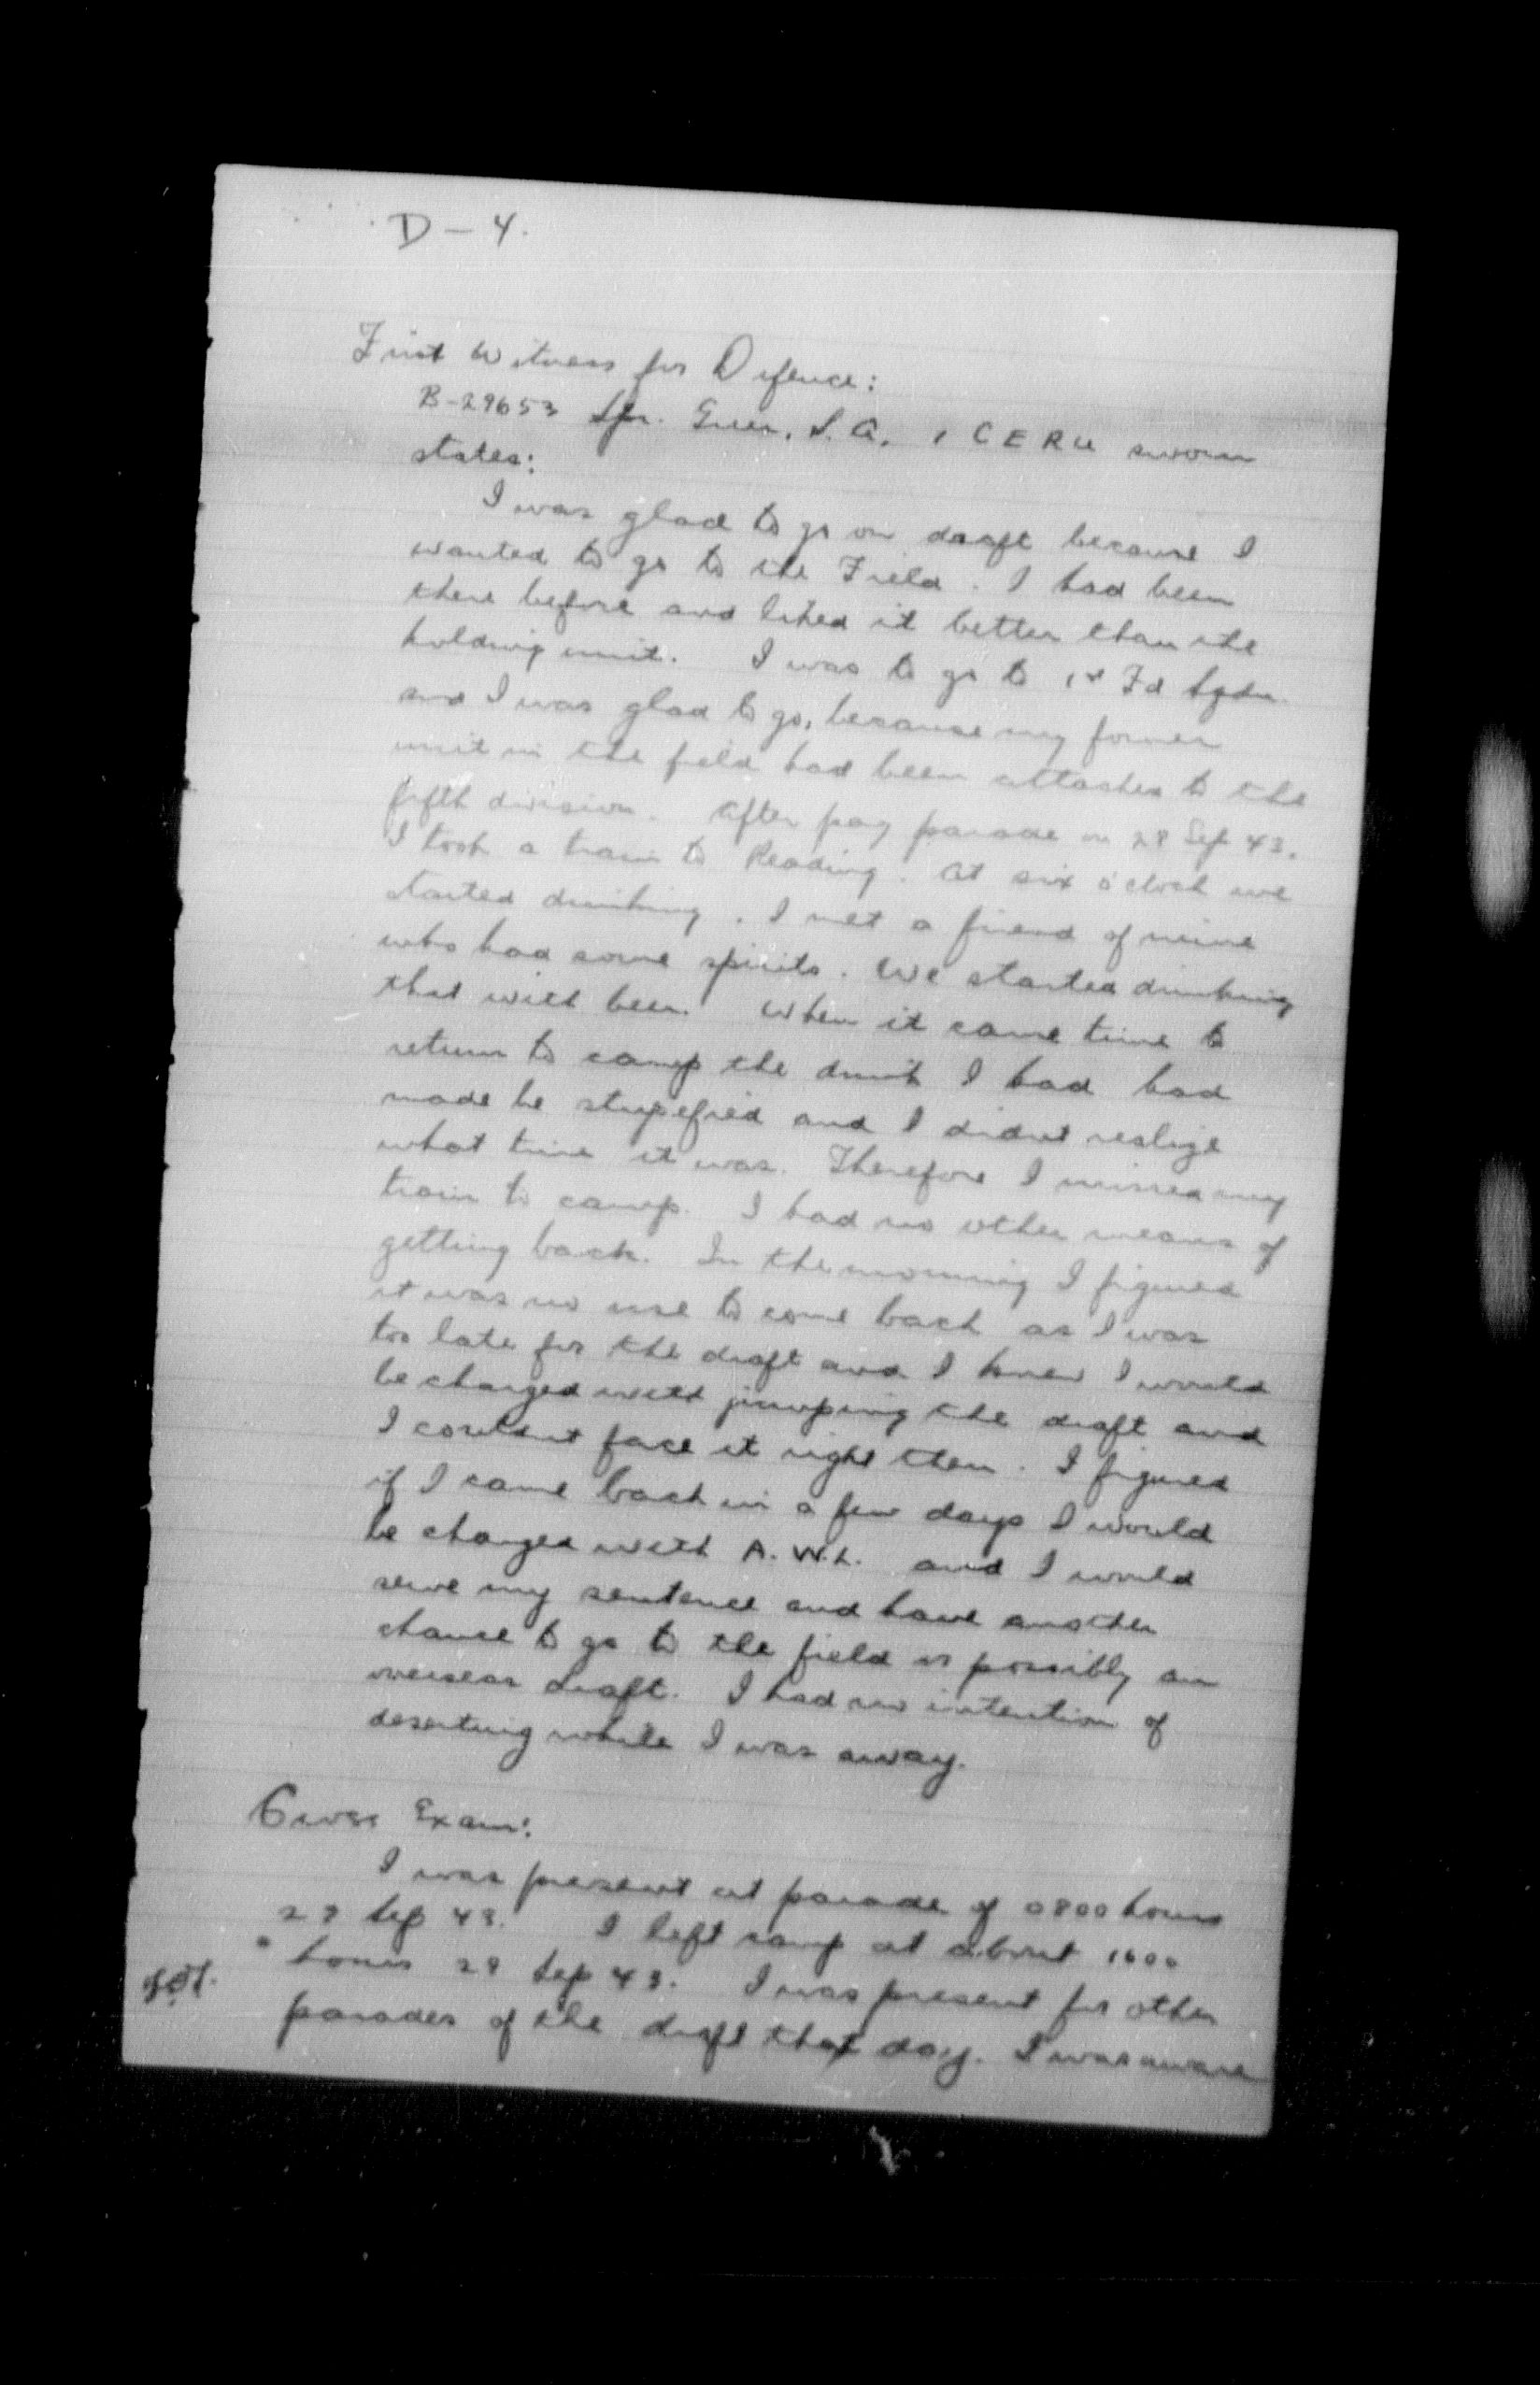 D - 4.
First Witness for Defence:
B-29653 Spr. Greer, S. A. 1 C E R U sworn
states:
I was glad to go on draft because I
wanted to go to the Field. I had been
there before and liked it better than the
holding unit. I was to go to 1st Fd Sqdn.
and I was glad to go, because my former
unit in the field had been attached to the
fifth division. After pay parade on 28 Sep 43.
I took a train to Reading. At six o'clock we
started drinking. I met a friend of mine
who had some spirits. We started drinking
that with beer. When it came time to
return to camp the drink I had had
made be stupefied and I didnt realize
what time it was. Therefore I missed my
train to camp. I had no other means of
getting back. In the morning I figured
it was no use to come back as I was
too late for the draft and I knew I would
be charged with jumping the draft and
I couldnt face it right then. I figured
if I came back in a few days I would
be charged with A.W.L. and I would
serve my sentence and have another
chance to go to the field or possibly an
overseas draft. I had no intention of
deserting while I was away.
Cross Exam:
I was present at parade of 0800 hours
28 Sep 43. I left camp at about 1600
hours 28 Sep 43. I was present for other
parades of the draft that day. I was aware